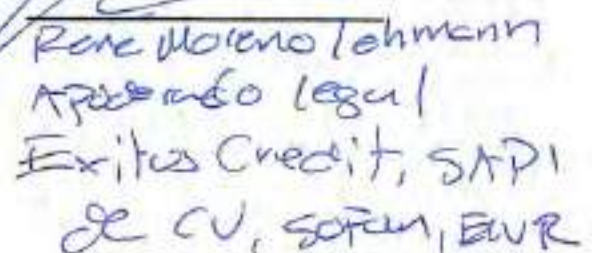 Rene Moreno Lehmann
Apoderado legal
Exitus Credit, SAPI
de CV, SOFOM, ENR